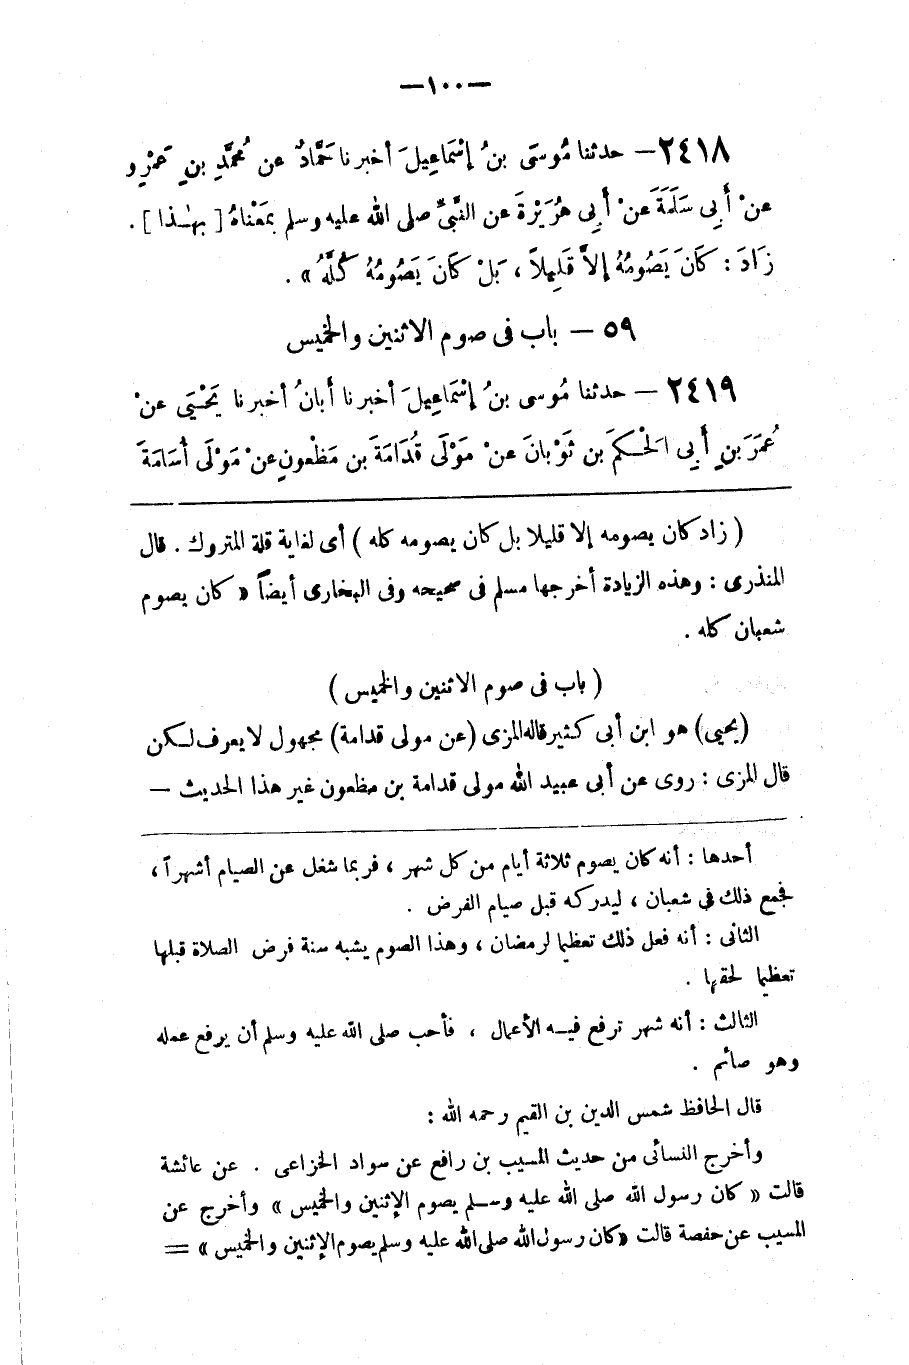 —١٠٠—
٢٤١٨— حدثنا مُوسَى بنُ إسْمَاعِيلَ أخبرنا حَمَّادٌ عن مُحمَّدِ بنِ عَمْرٍو
عنْ أَبِى سَلَمَةَ عَنْ أَبِى هُرَيْرةَ عن النَّبىِّ صلى الله عليه وسلم بمَعْنَاهُ [ بهــٰذا ] .
زَادَ : كَانَ يَصُومُهُ إلاَّ قَلِيلاً ، بَلْ كَانَ يَصُومُهُ كُلَّهُ » .
٥٩ — باب فى صوم الاثنين والخميس
٢٤١٩ — حدثنا مُوسى بنُ إسْمَاعِيلَ أخبرنا أَبانُ أخبرنا يَحْيَى عنْ
عُمَرَ بنِ أَبِى الحَكَمِ بن ثَوْبانَ عنْ مَوْلَى قُدَامَةَ بن مَظْعونٍ عنْ مَوْلَى أُسَامَةَ
( زاد كان يصومه إلا قليلا بل كان يصومه كله ) أى لغاية قلة المتروك . قال
المنذرى : وهذه الزيادة أخرجها مسلم فى صحيحه وفى البخارى أيضاً « كان يصوم
شعبان كله .
( باب فى صوم الاثنين والخميس )
(يحيى) هو ابن أبى كثير قاله المزى (عن مولى قدامة) مجهول لا يعرف لكن
قال المزى : روى عن أبى عبيد الله مولى قدامة بن مظعون غير هذا الحديث —
أحدها : أنه كان يصوم ثلاثة أيام من كل شهر ، فربما شغل عن الصيام أشهراً ،
فجمع ذلك فى شعبان ، ليدركه قبل صيام الفرض .
الثانى : أنه فعل ذلك تعظيما لرمضان ، وهذا الصوم يشبه سنة فرض الصلاة قبلها
تعظيما لحقها .
الثالث : أنه شهر ترفع فيــه الأعمال ، فأحب صلى الله عليه وسلم أن يرفع عمله
وهو صائم .
قال الحافظ شمس الدين بن القيم رحمه الله :
وأخرج النسائى من حديث المسيب بن رافع عن سواد الخزاعى . عن عائشة
قالت « كان رسول الله صلى الله عليه وســلم يصوم الإثنين والخميس » وأخرج عن
المسيب عن حفصة قالت «كان رسول الله صلى الله عليه وسلم يصوم الإثنين والخميس » =